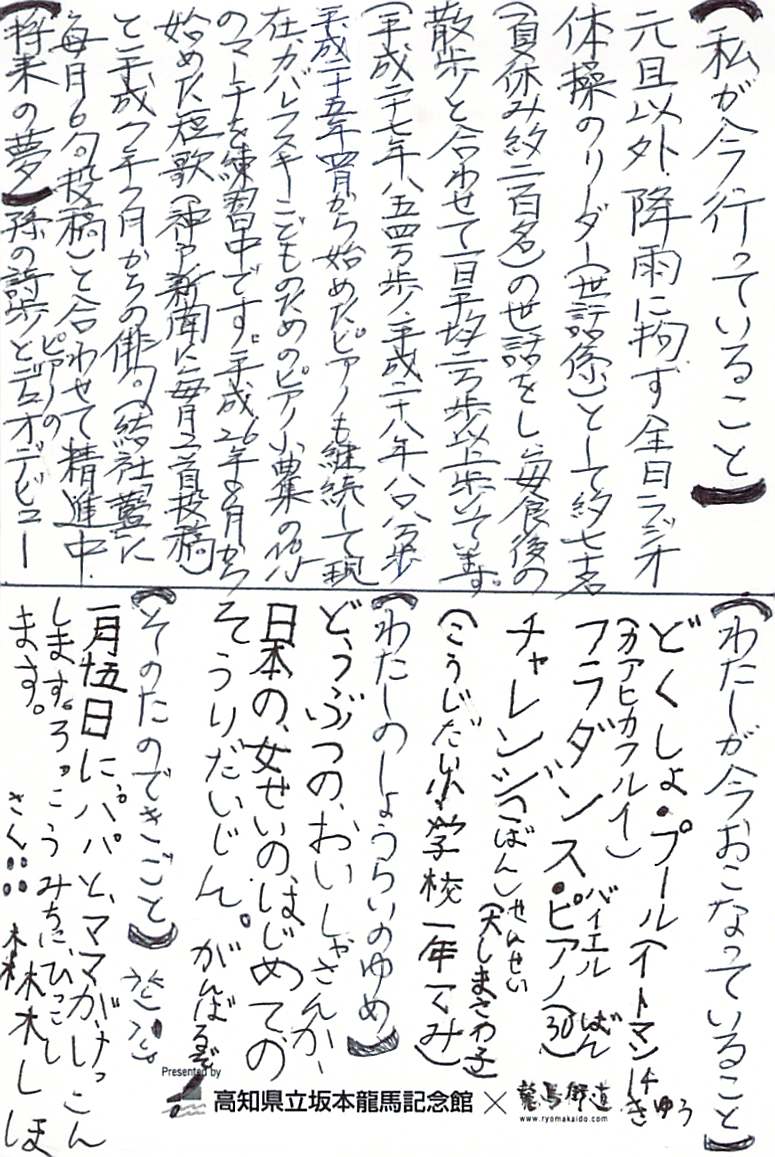 【私が今行っていること】
元旦以外、降雨に拘ず全日ラジオ
体操のリーダー(世話係)として約七十名
(夏休み約二百名)の世話をし、毎食後の
散歩と合わせて一日平均二万歩以上歩いています。
(平成二十七年八五四万歩、平成二十八年八〇八万歩
平成二十五年四月から始めたピアノも継続して現
在、カバレフスキーこどものためのピアノ小曲集の
のマーチを練習中です。平成26年8月から
始めた短歌(神戸新聞に毎月二首投稿)
と平成 年 月からの俳句(結社 に
毎月6句投稿)と合わせて精進中
【将来の夢】孫の詩歩とピアノのデュオデビュー
【わたしが今おこなっていること】
どくしょ・プール(イトマン 4きゅう
(カアヒカフルイ)
フラダンス・ピアノ(バイエル30ばん)
チャレンジ(こばん)せんせい
(大しまさわ子)
(こうじだい小学校一年一くみ)
【わたしのしょうらいのゆめ】
どうぶつの、おいしゃさんか、
日本の、女せいの、はじめての
そうりだいじん。がんばるぞ
【そのたのできごと】
一月 五日に、パパと、ママが、けっこん
します。ろっこうみちに、ひっこし
ます。
Presented by
高知県立坂本龍馬記念館 × 龍馬街道
www.ryomakaido.com